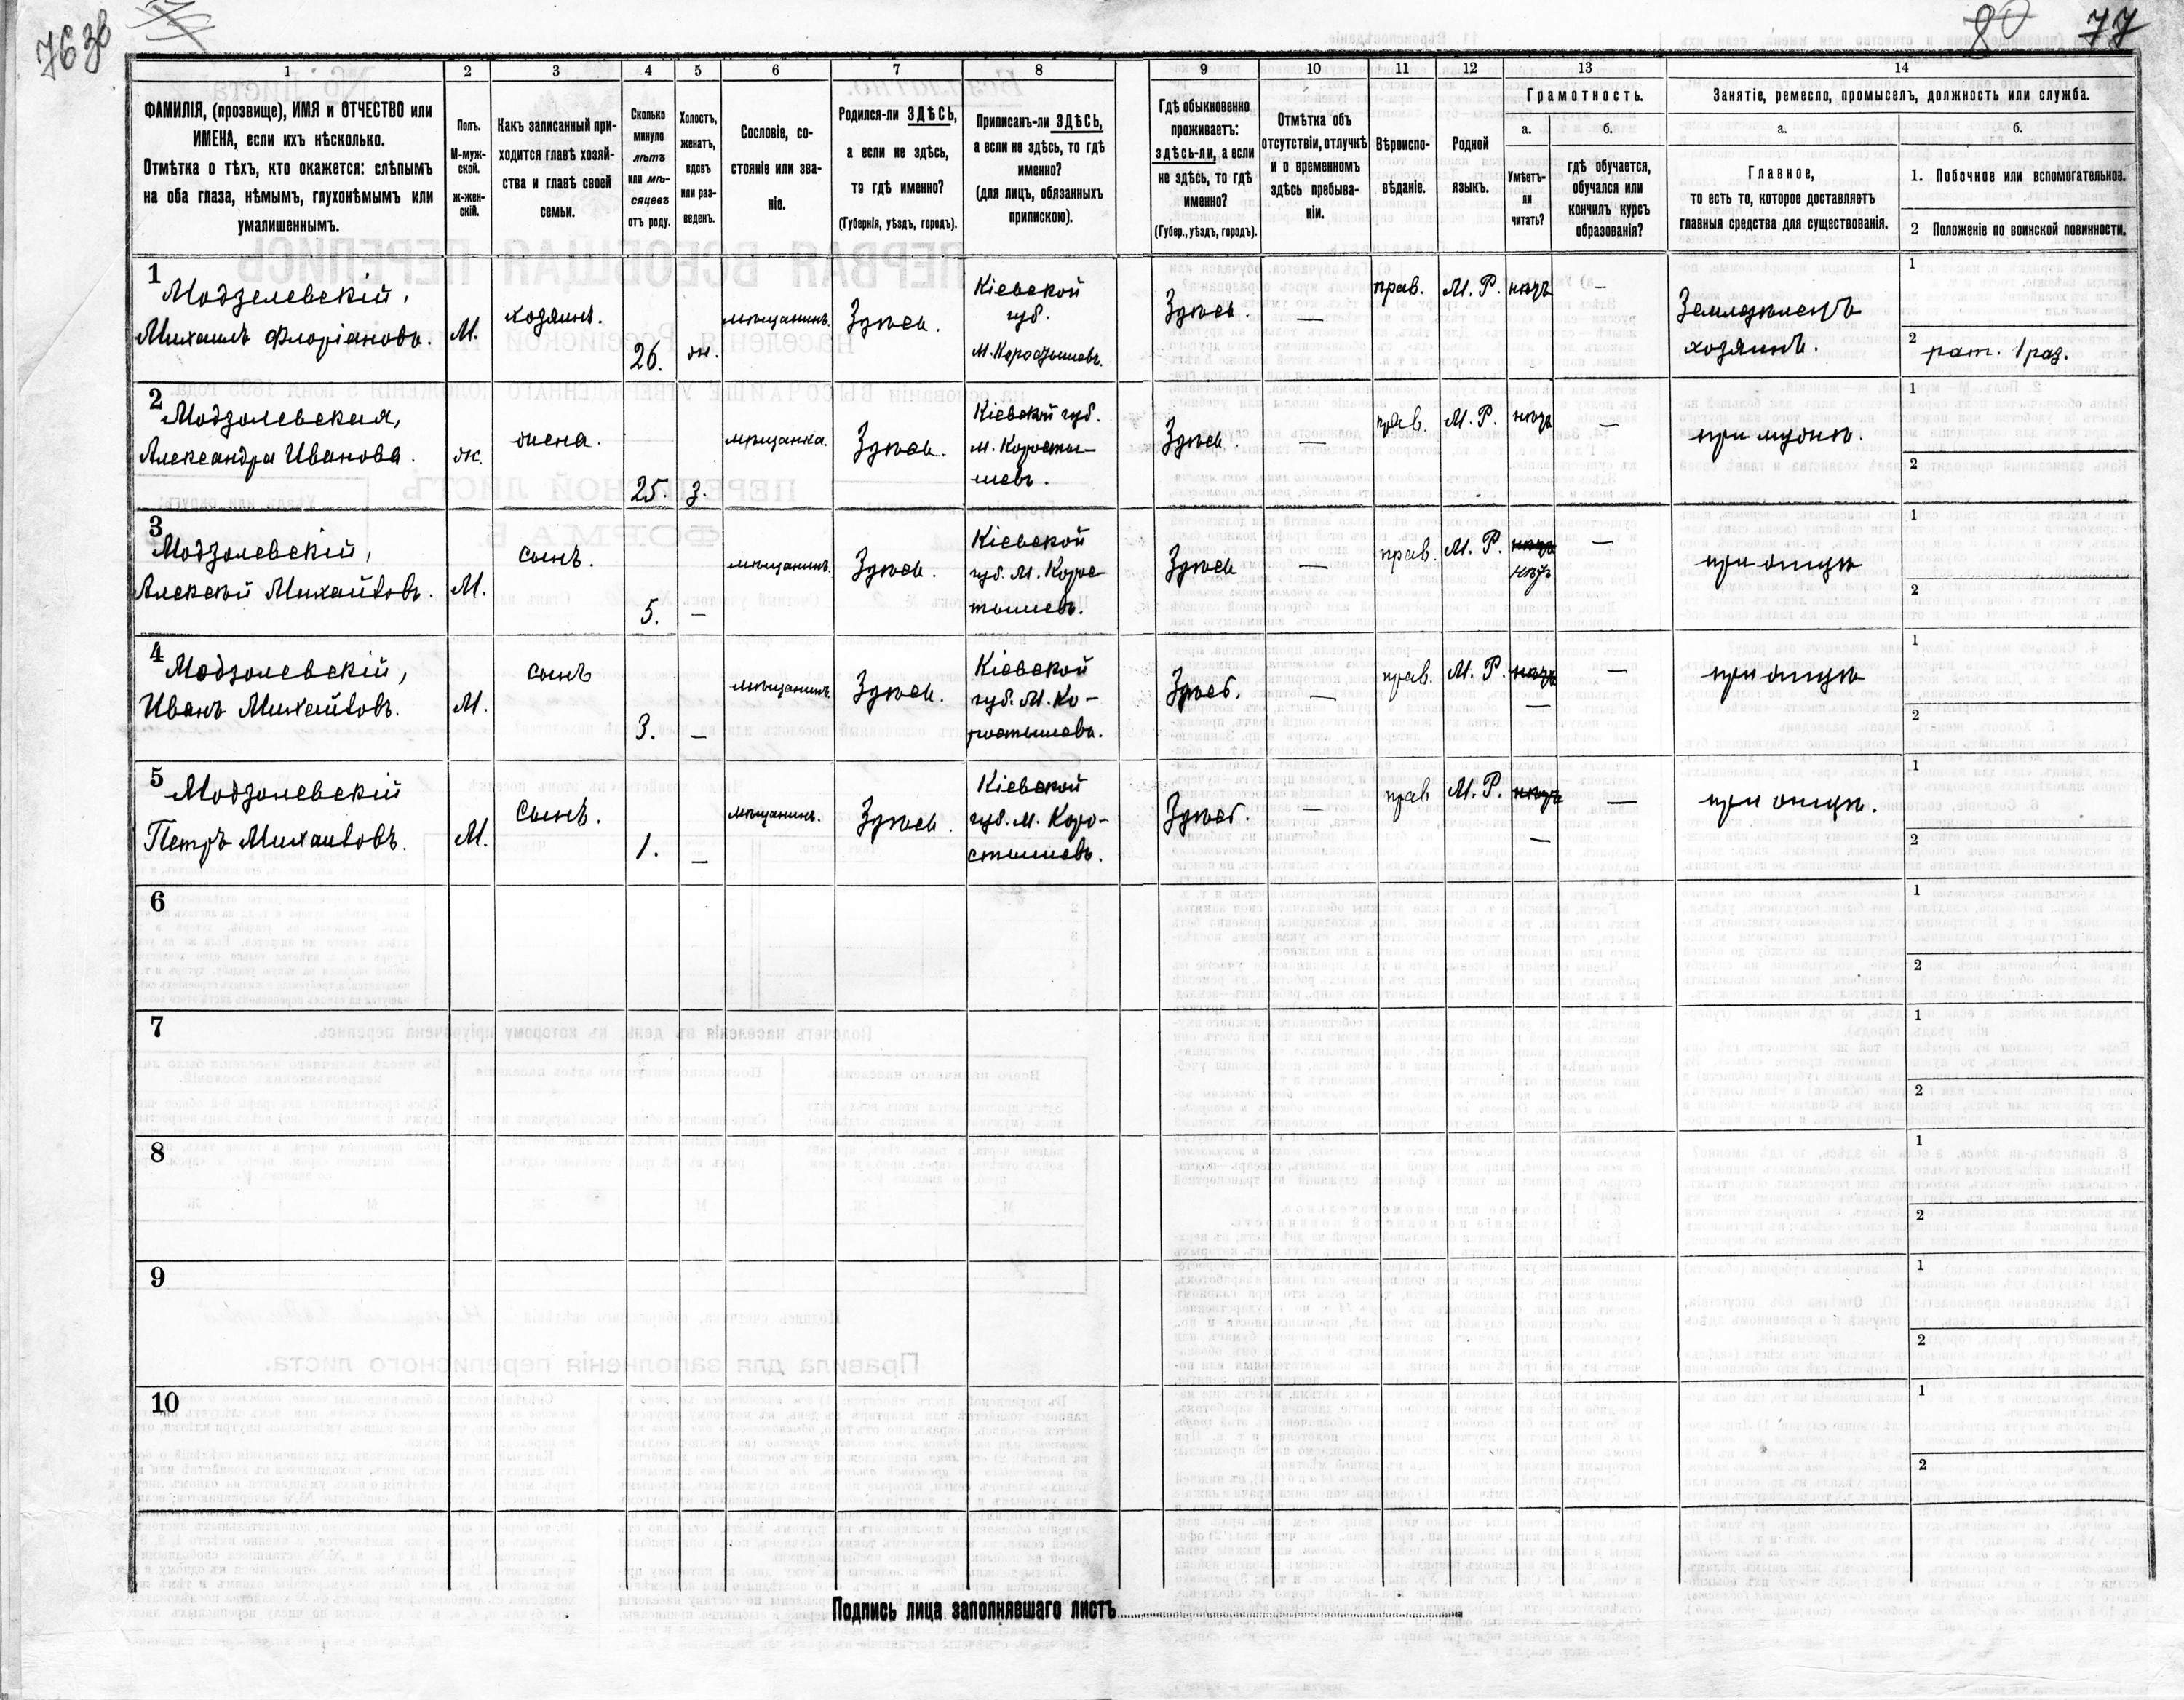 77
1
2
3
4
5
6
7
8
9
10
11
12
13
14
ФАМИЛІЯ, (прозвище), ИМЯ и ОТЧЕСТВО или
ИМЕНА, если ихъ нѣсколько.
Отмѣтка о тѣхъ, кто окажется: слѣпымъ
на оба глаза, нѣмымъ, глухонѣмымъ или
умалишеннымъ.
Полъ.
М-муж-
ской.
ж-жен-
скій.
Какъ записанный при-
ходится главѣ хозяй-
ства и главѣ своей
семьи.
Сколько
минуло
лѣтъ
или мѣ-
сяцевъ
отъ роду.
Холостъ,
женатъ,
вдовъ
или раз-
веденъ.
Сословіе, со-
стояніе или зва-
ніе.
Родился-ли ЗДѢСЬ,
а если не здѣсь,
то гдѣ именно?
(Губернія, уѣздъ, городъ).
Приписанъ-ли ЗДѢСЬ,
а если не здѣсь, то гдѣ
именно?
(для лицъ, обязанныхъ
припискою).
Гдѣ обыкновенно
проживаетъ:
здѣсь-ли, а если
не здѣсь, то гдѣ
именно?
(Губер., уѣздъ, городъ).
Отмѣтка объ
отсутствіи, отлучкѣ
и о временномъ
здѣсь пребыва-
ніи.
Вѣроиспо-
вѣданіе.
Родной
языкъ.
Грамотность.
а.
Умѣетъ-
ли
читать?
б.
гдѣ обучается,
обучался или
кончилъ курсъ
образованія?
Занятіе, ремесло, промыселъ, должность или служба.
а.
Главное,
то есть то, которое доставляетъ
главныя средства для существованія.
б.
1. Побочное или вспомогательное.
2 Положеніе по воинской повинности.
1
Модзелевскій,
Михаилъ Флоріановъ.
М.
хозяинъ.
26.
ж.
мѣщанинъ.
Здѣсь.
Кіевской
губ.
М. Коростышевъ.
Здѣсь.
—
прав.
М. Р.
нѣтъ
—
Земледѣлецъ
хозяинъ.
1
2 рат. 1 раз.
2
Модзолевская,
Александра Иванова.
ж.
жена.
25.
з.
мѣщанка.
Здѣсь.
Кіевской губ.
м. Коросты-
шевъ.
Здѣсь.
—
прав.
М. Р.
нѣтъ
—
при мужѣ.
1
2
3
Модзолевскій,
Алексѣй Михайловъ.
М.
сынъ.
5.
—
мѣщанинъ.
Здѣсь.
Кіевской
губ. М. Корос-
тышевъ.
Здѣсь
—
прав.
М. Р.
нѣтъ
нѣтъ
—
при отцѣ
1
2
4
Модзолевскій,
Иванъ Михайловъ.
М.
сынъ
3.
—
мѣщанинъ.
Здѣсь.
Кіевской
губ. М. Ко-
ростышевъ.
Здѣсь.
—
прав.
М. Р.
нѣтъ
—
—
при отцѣ
1
2
5
Модзолевскій
Петръ Михаиловъ.
М.
сынъ.
1.
—
мѣщанинъ.
Здѣсь.
Кіевской
губ. м. Коро-
стышевъ.
Здѣсь.
—
прав
М. Р.
нѣтъ
—
—
при отцѣ.
1
2
6
1
2
7
1
2
8
1
2
9
1
2
10
1
2
Подпись лица заполнявшаго листъ